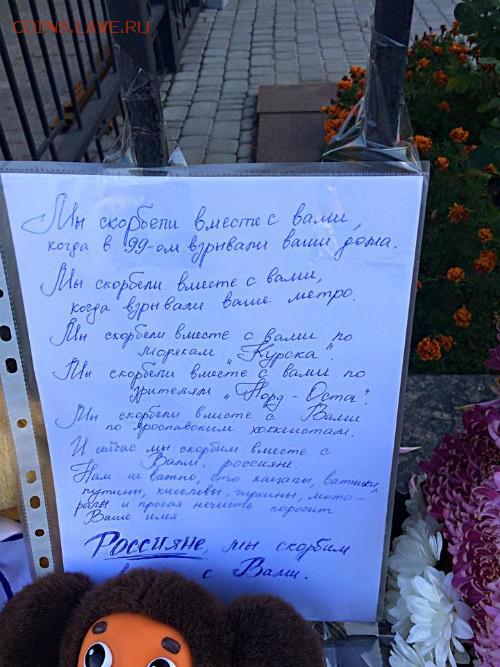 COINS.LAVE.RU
Мы скорбели вместе с вами,
когда в 99-ом взрывали ваши дома.
Мы скорбели вместе с вами,
когда взрывали ваше метро.
Мы скорбели вместе с вами по
морякам „Курска".
Мы скорбели вместе с вами по
зрителям „Норд-Оста".
Мы скорбели вместе с Вами
по ярославским хоккеистам.
И сейчас мы скорбим вместе с
Вами, россияне.
Нам не важно, что кацапы, ватники,
путины, киселевы, гиркины, мото-
ролы и прочая нечисть поросит
Ваше имя
Россияне, мы скорбим
с Вами.